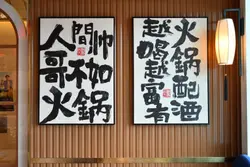 人間帅
哥不如
火锅
火锅配酒
越喝越富有